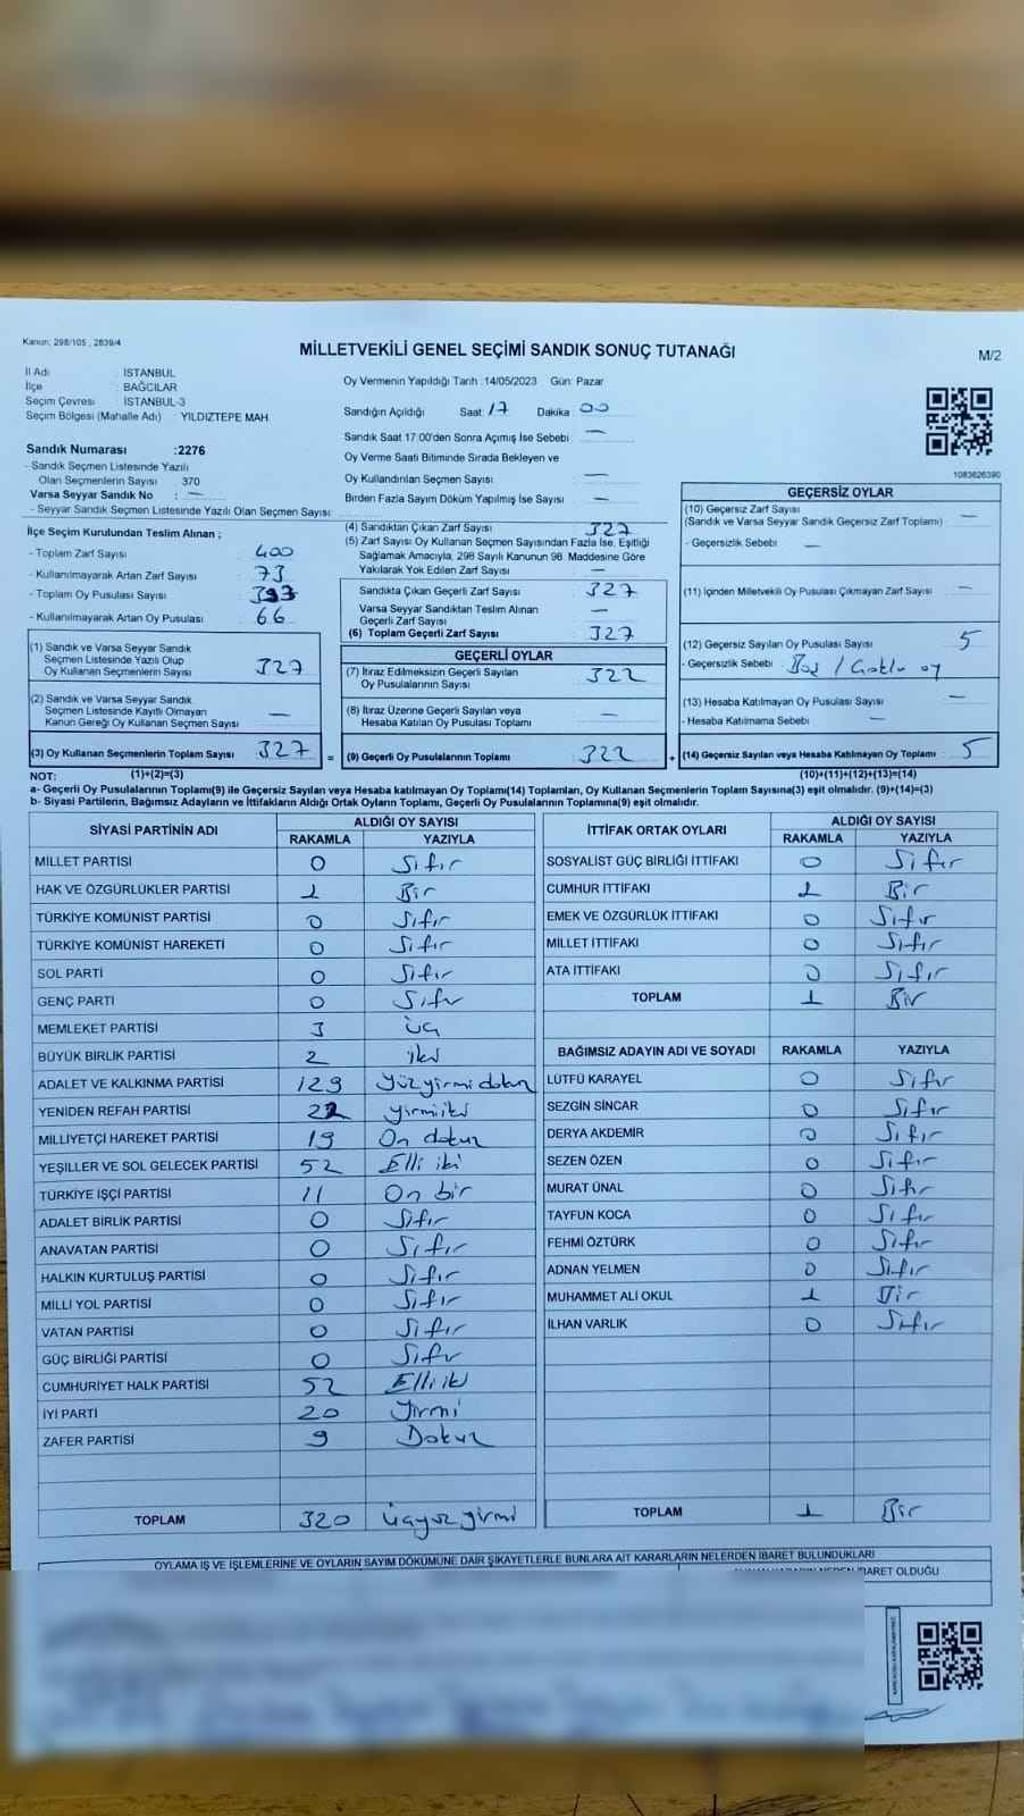 Kanun: 298/105, 2839/4
MİLLETVEKİLİ GENEL SEÇİMİ SANDIK SONUÇ TUTANAĞI
M/2
İl Adı : İSTANBUL
İlçe : BAĞCILAR
Seçim Çevresi : İSTANBUL-3
Seçim Bölgesi (Mahalle Adı) : YILDIZTEPE MAH.
Oy Vermenin Yapıldığı Tarih :14/05/2023 Gün: Pazar
Sandığın Açıldığı Saat: 17 Dakika 00
Sandık Saat 17:00'den Sonra Açımış İse Sebebi —
Oy Verme Saati Bitiminde Sırada Bekleyen ve
Oy Kullandırılan Seçmen Sayısı —
Birden Fazla Sayım Döküm Yapılmış İse Sayısı —
Sandık Numarası :2276
- Sandık Seçmen Listesinde Yazılı
Olan Seçmenlerin Sayısı 370
Varsa Seyyar Sandık No : —
- Seyyar Sandık Seçmen Listesinde Yazılı Olan Seçmen Sayısı:
1083626390
İlçe Seçim Kurulundan Teslim Alınan ;
- Toplam Zarf Sayısı 400
- Kullanılmayarak Artan Zarf Sayısı 73
- Toplam Oy Pusulası Sayısı 393
- Kullanılmayarak Artan Oy Pusulası 66
(1) Sandık ve Varsa Seyyar Sandık
Seçmen Listesinde Yazılı Olup
Oy Kullanan Seçmenlerin Sayısı 327
(2) Sandık ve Varsa Seyyar Sandık
Seçmen Listesinde Kayıtlı Olmayan
Kanun Gereği Oy Kullanan Seçmen Sayısı —
(3) Oy Kullanan Seçmenlerin Toplam Sayısı 327 =
(4) Sandıktan Çıkan Zarf Sayısı 327
(5) Zarf Sayısı Oy Kullanan Seçmen Sayısından Fazla İse, Eşitliği
Sağlamak Amacıyla, 298 Sayılı Kanunun 98. Maddesine Göre
Yakılarak Yok Edilen Zarf Sayısı —
Sandıkta Çıkan Geçerli Zarf Sayısı 327
Varsa Seyyar Sandıktan Teslim Alınan
Geçerli Zarf Sayısı —
(6) Toplam Geçerli Zarf Sayısı 327
GEÇERLİ OYLAR
(7) İtiraz Edilmeksizin Geçerli Sayılan
Oy Pusulalarının Sayısı 322
(8) İtiraz Üzerine Geçerli Sayılan veya
Hesaba Katılan Oy Pusulası Toplamı —
(9) Geçerli Oy Pusulalarının Toplamı 322 +
GEÇERSİZ OYLAR
(10) Geçersiz Zarf Sayısı
(Sandık ve Varsa Seyyar Sandık Geçersiz Zarf Toplamı) —
- Geçersizlik Sebebi —
(11) İçinden Milletvekili Oy Pusulası Çıkmayan Zarf Sayısı —
(12) Geçersiz Sayılan Oy Pusulası Sayısı 5
- Geçersizlik Sebebi Boş / Çoklu oy
(13) Hesaba Katılmayan Oy Pusulası Sayısı —
- Hesaba Katılmama Sebebi —
(14) Geçersiz Sayılan veya Hesaba Katılmayan Oy Toplamı 5
NOT: (1)+(2)=(3) (10)+(11)+(12)+(13)=(14)
a- Geçerli Oy Pusulalarının Toplamı(9) ile Geçersiz Sayılan veya Hesaba katılmayan Oy Toplamı(14) Toplamları, Oy Kullanan Seçmenlerin Toplam Sayısına(3) eşit olmalıdır. (9)+(14)=(3)
b- Siyasi Partilerin, Bağımsız Adayların ve İttifakların Aldığı Ortak Oyların Toplamı, Geçerli Oy Pusulalarının Toplamına(9) eşit olmalıdır.
SİYASİ PARTİNİN ADI ALDIĞI OY SAYISI
RAKAMLA YAZIYLA
MİLLET PARTİSİ 0 Sıfır
HAK VE ÖZGÜRLÜKLER PARTİSİ 1 Bir
TÜRKİYE KOMÜNİST PARTİSİ 0 Sıfır
TÜRKİYE KOMÜNİST HAREKETİ 0 Sıfır
SOL PARTİ 0 Sıfır
GENÇ PARTİ 0 Sıfır
MEMLEKET PARTİSİ 3 üç
BÜYÜK BİRLİK PARTİSİ 2 iki
ADALET VE KALKINMA PARTİSİ 129 Yüzyirmi dokuz
YENİDEN REFAH PARTİSİ 22 yirmiiki
MİLLİYETÇİ HAREKET PARTİSİ 19 On dokuz
YEŞİLLER VE SOL GELECEK PARTİSİ 52 Elli iki
TÜRKİYE İŞÇİ PARTİSİ 11 On bir
ADALET BİRLİK PARTİSİ 0 Sıfır
ANAVATAN PARTİSİ 0 Sıfır
HALKIN KURTULUŞ PARTİSİ 0 Sıfır
MİLLİ YOL PARTİSİ 0 Sıfır
VATAN PARTİSİ 0 Sıfır
GÜÇ BİRLİĞİ PARTİSİ 0 Sıfır
CUMHURİYET HALK PARTİSİ 52 Elli iki
İYİ PARTİ 20 Yirmi
ZAFER PARTİSİ 9 Dokuz
TOPLAM 320 üçyüz yirmi
İTTİFAK ORTAK OYLARI ALDIĞI OY SAYISI
RAKAMLA YAZIYLA
SOSYALİST GÜÇ BİRLİĞİ İTTİFAKI 0 Sıfır
CUMHUR İTTİFAKI 1 Bir
EMEK VE ÖZGÜRLÜK İTTİFAKI 0 Sıfır
MİLLET İTTİFAKI 0 Sıfır
ATA İTTİFAKI 0 Sıfır
TOPLAM 1 Bir
BAĞIMSIZ ADAYIN ADI VE SOYADI RAKAMLA YAZIYLA
LÜTFÜ KARAYEL 0 Sıfır
SEZGİN SİNCAR 0 Sıfır
DERYA AKDEMİR 0 Sıfır
SEZEN ÖZEN 0 Sıfır
MURAT ÜNAL 0 Sıfır
TAYFUN KOCA 0 Sıfır
FEHMİ ÖZTÜRK 0 Sıfır
ADNAN YELMEN 0 Sıfır
MUHAMMET ALİ OKUL 1 Bir
İLHAN VARLIK 0 Sıfır
TOPLAM 1 Bir
OYLAMA İŞ VE İŞLEMLERİNE VE OYLARIN SAYIM DÖKÜMÜNE DAİR ŞİKAYETLERLE BUNLARA AİT KARARLARIN NELERDEN İBARET BULUNDUKLARI
OLDUĞU